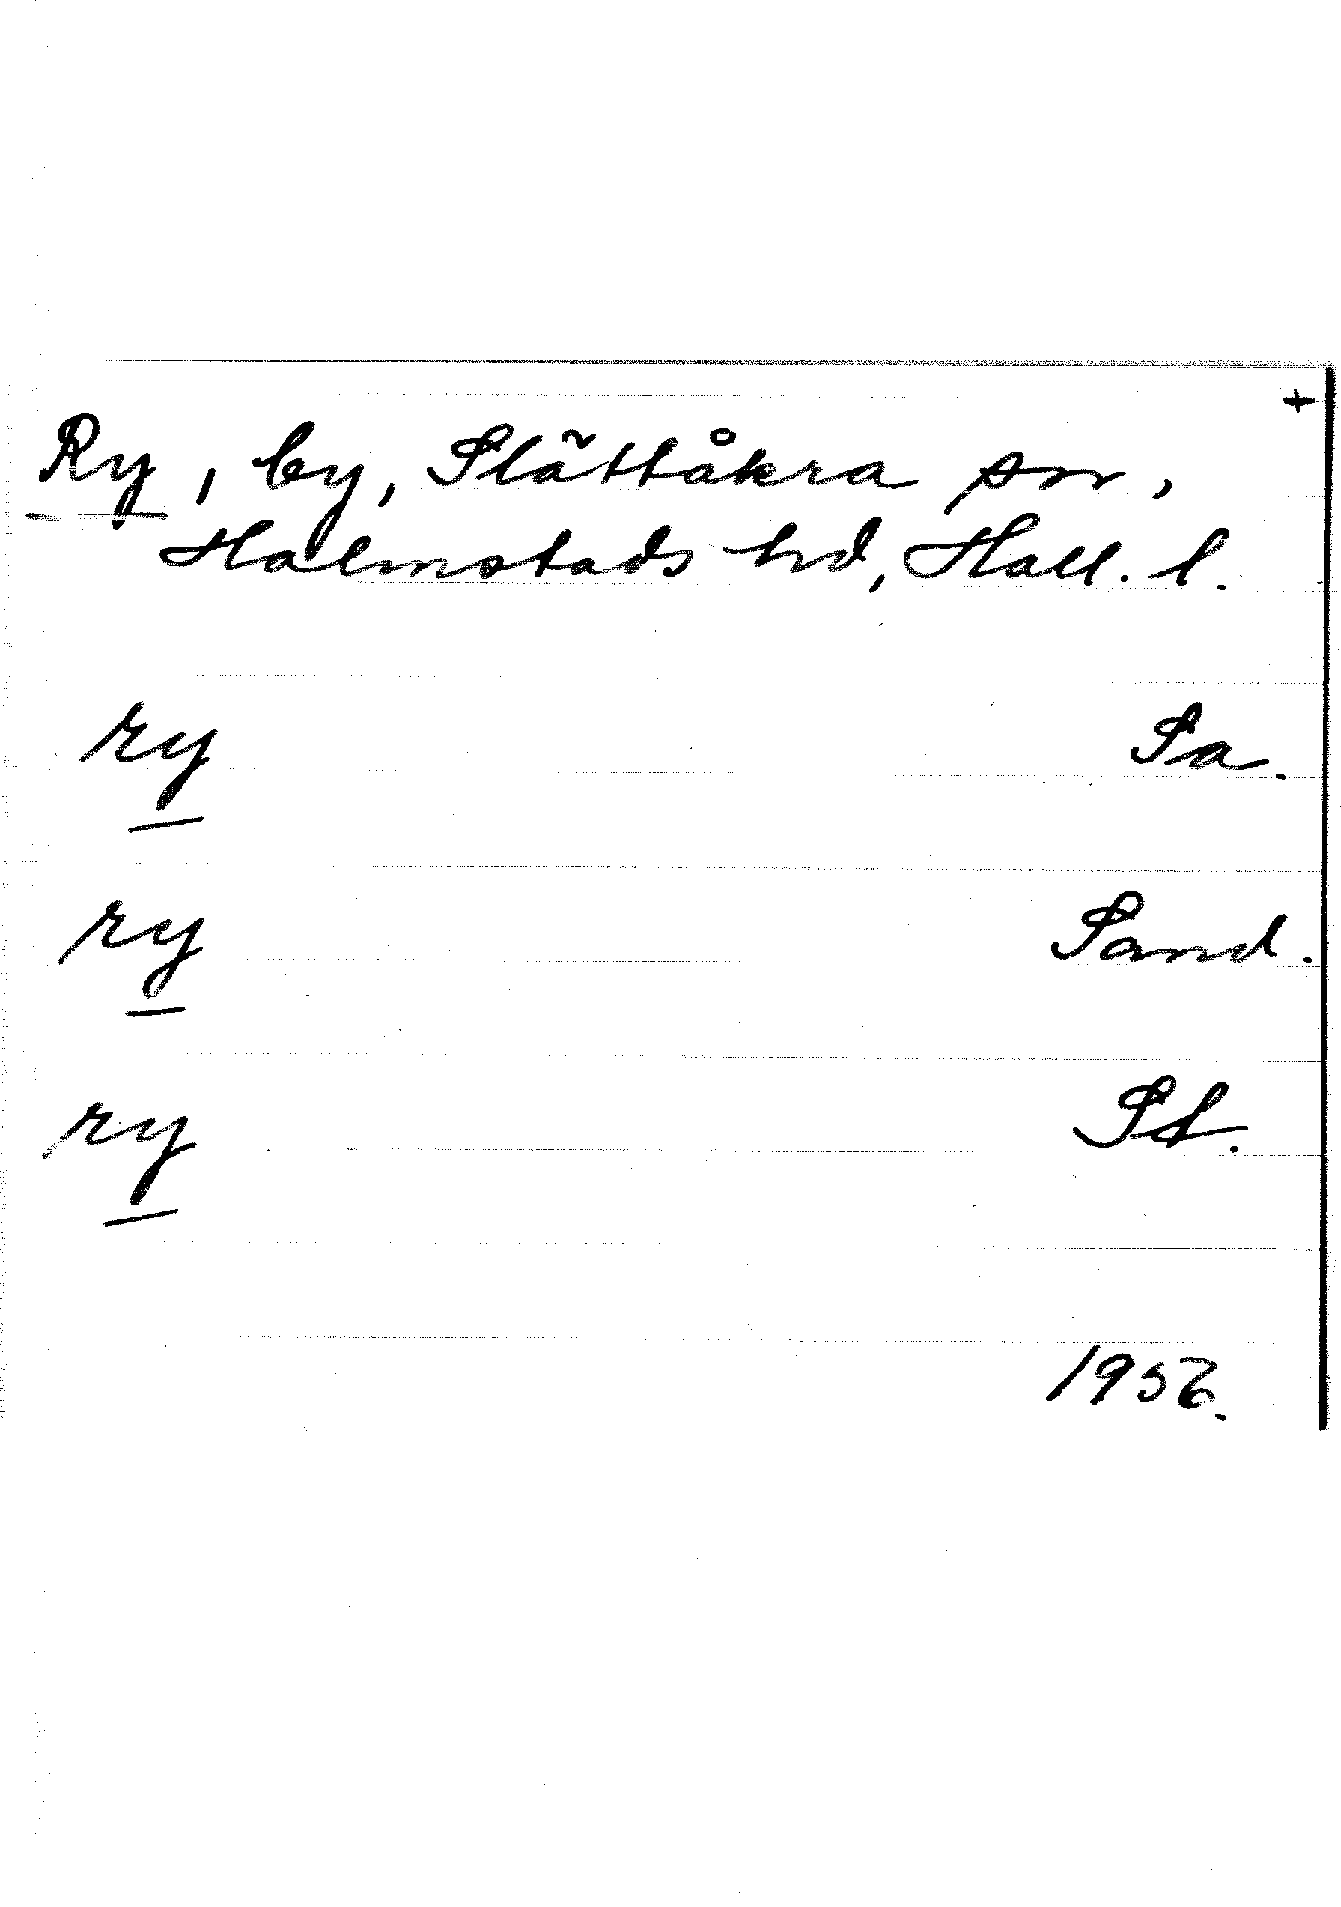 +
Ry, by, Slättåkra sn,
Halmstads hd, Hall. l.
ry Sa.
ry Sand.
ry St.
1956.